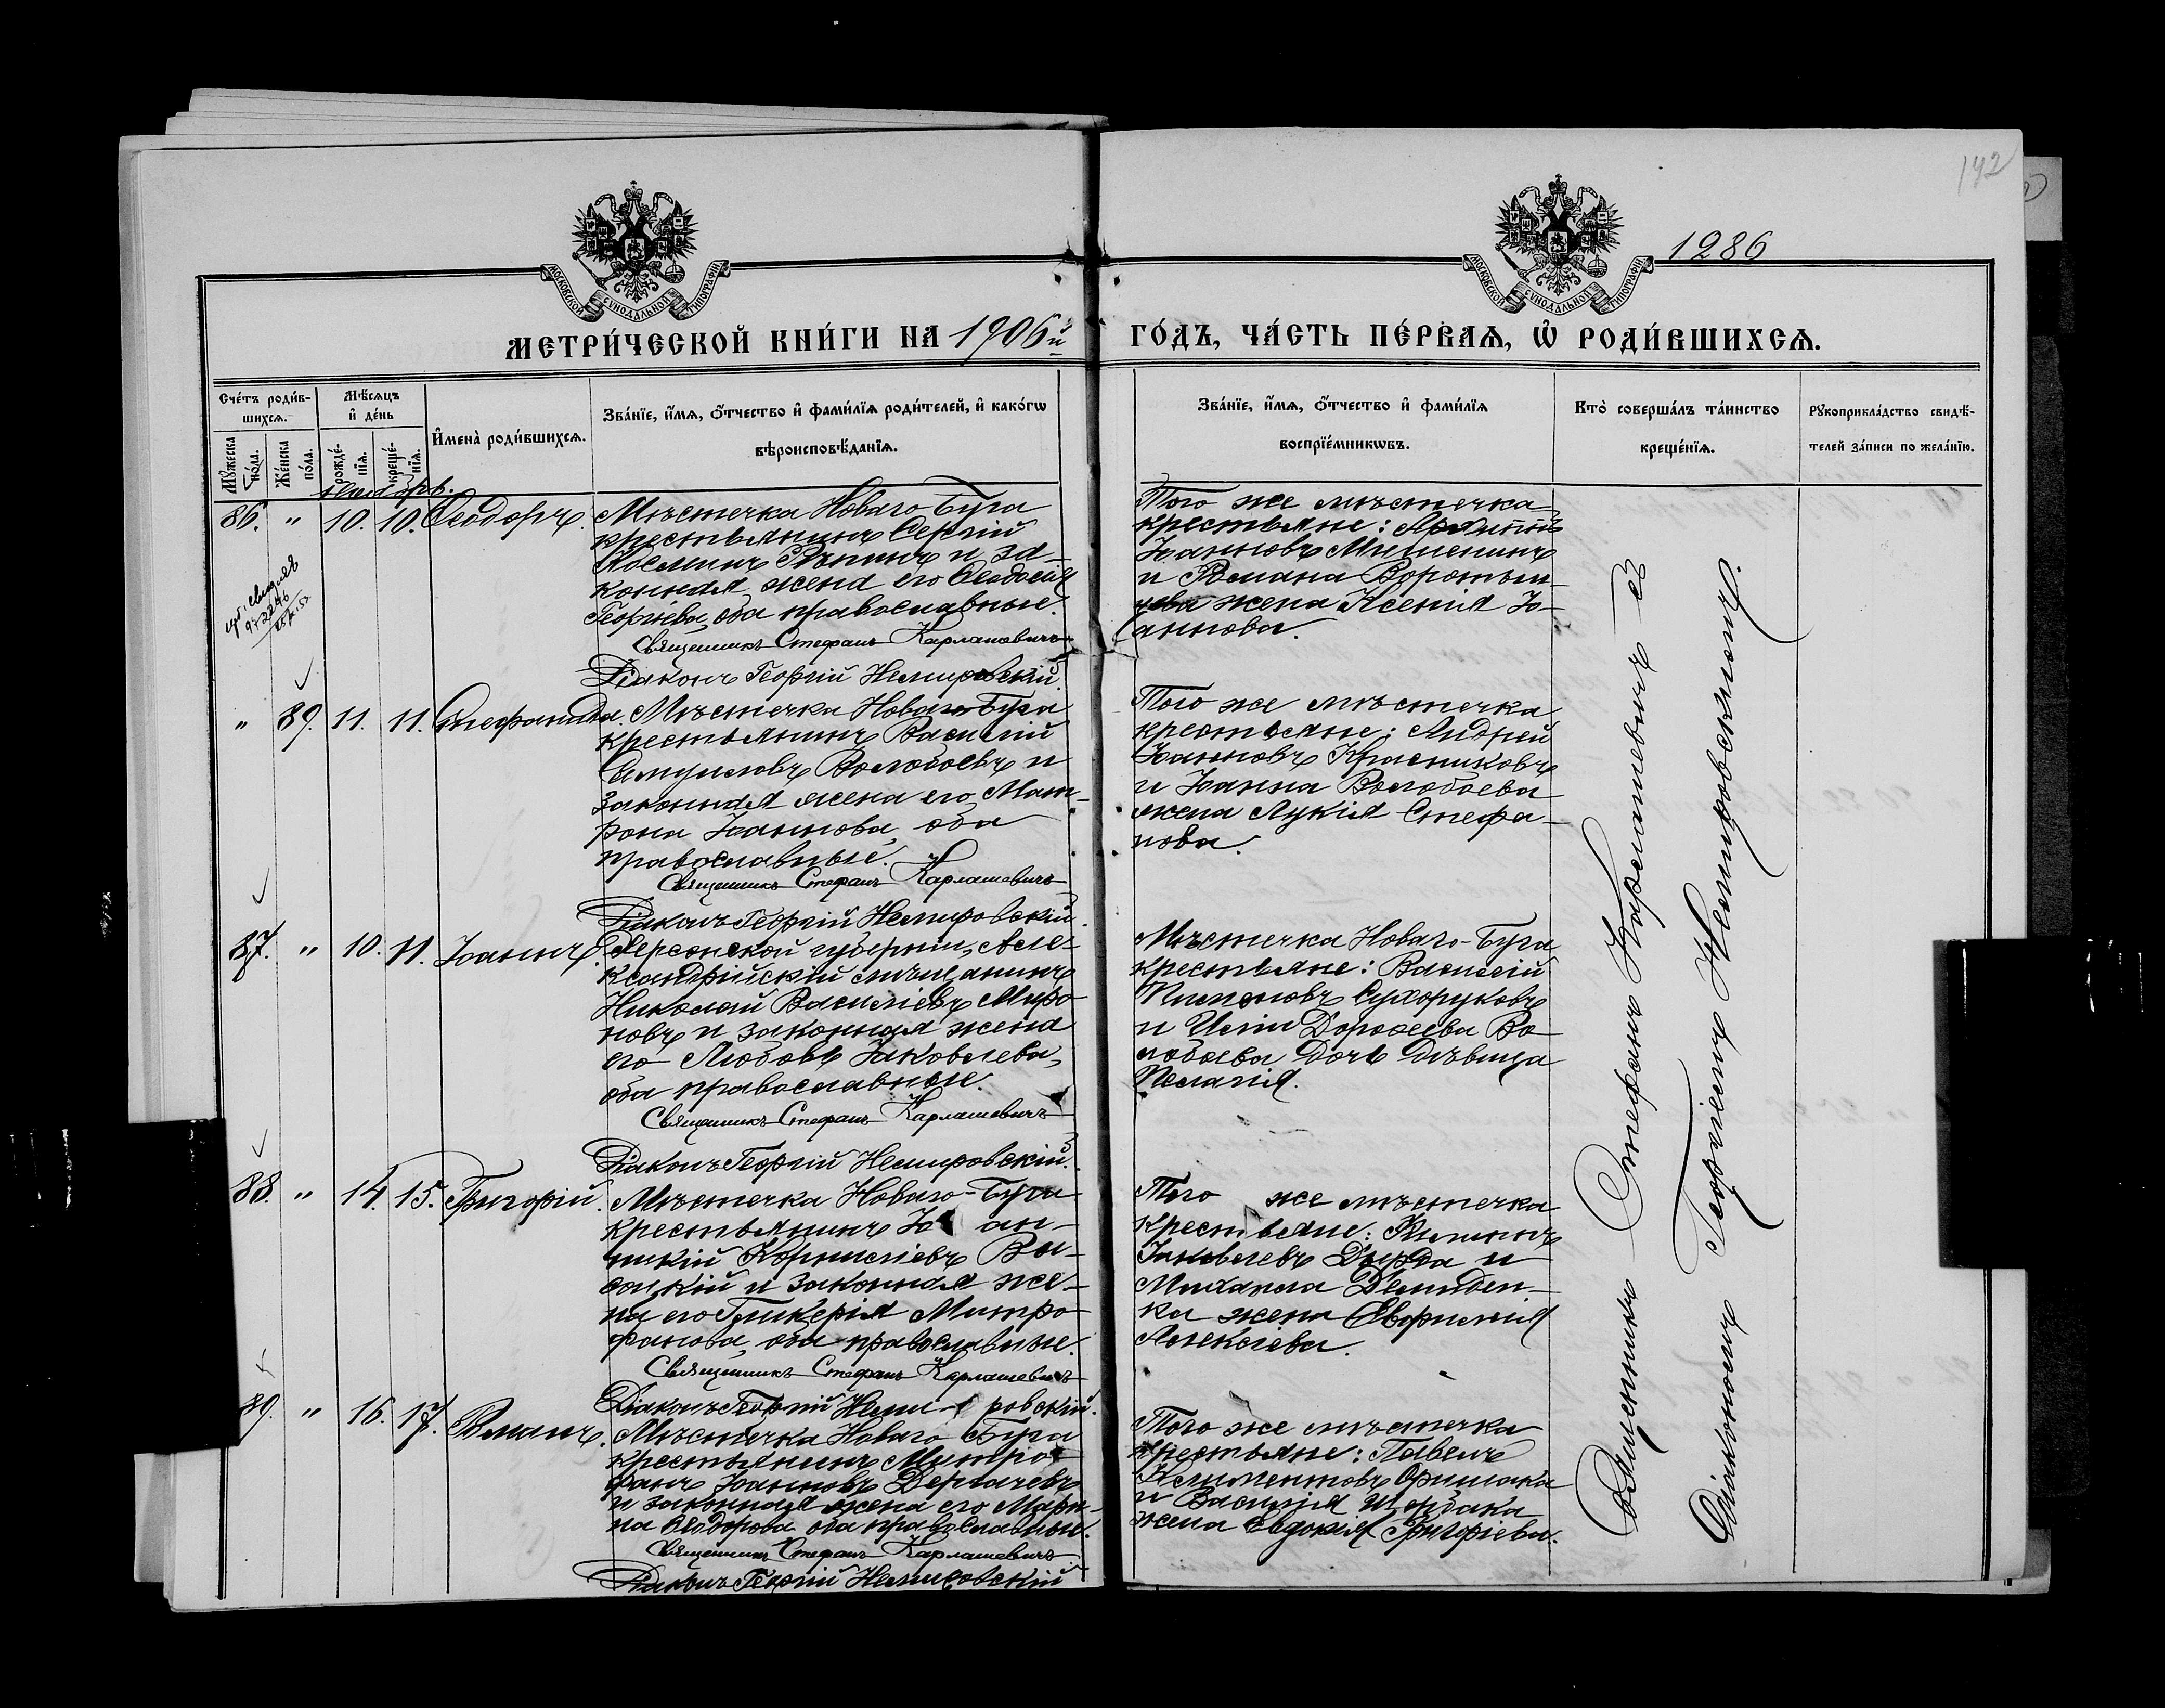 142
1286
МОСКОВСКОЙ СѴНОДАЛЬНОЙ ТИПОГРАФІИ
МОСКОВСКОЙ СѴНОДАЛЬНОЙ ТИПОГРАФІИ
МЕТРИ́ЧЕСКОЙ КНИ́ГИ НА 1906й
ГО́ДЪ, ЧА́СТЬ ПЕ́РВАѦ, Ѡ҆ РОДИ́ВШИХСѦ.
Сче́тъ роди́в-
шихсѧ.
Мꙋ́жеска по́ла.
Же́нска по́ла.
Мѣ́сѧцъ
и҆ де́нь
рожде́-
нїѧ.
креще́-
нїѧ.
И҆мена̀ роди́вшихсѧ.
Зва́нїе, и҆́мѧ, ѻ҆́тчество и҆ фами́лїѧ роди́телей, и҆ како́гѡ
вѣроисповѣ́данїѧ.
Зва́нїе, и҆́мѧ, ѻ҆́тчество и҆ фами́лїѧ
воспрїе́мникѡвъ.
Кто̀ соверша́лъ та́инство
креще́нїѧ.
Рꙋкоприкла́дство свидѣ́-
телей за́писи по жела́нїю.
86. " 10. 10. Ѳеодоръ.
Мѣстечка Новаго Буга
крестьянинъ Сергій
Косминъ Рѣпинъ и за-
конная жена его Ѳеодосія
Георгіева, оба православные.
Священникъ Стефанъ Карлашевичъ
Діаконъ Георгій Немировскій.
Того же мѣстечка
крестьяне:
Іоанновъ Мишенинъ
и Романа Воротын-
цева жена Ксенія Іо-
аннова.
" 89. 11. 11. Стефанида.
Мѣстечка Новаго Буга
крестьянинъ Василій
Самуиловъ Волобоевъ и
законная жена его Мат-
рона Іоаннова, оба
православные.
Священникъ Стефанъ Карлашевичъ
Діаконъ Георгій Немировскій.
Того же мѣстечка
крестьяне: Андрей
Іоанновъ Красниковъ
и Іоанна Волобоева
жена Лукія Стефа-
нова.
87. " 10. 11. Іоаннъ.
Херсонской губерніи, Але-
ксандрійскій мѣщанинъ
Николай Василіевъ Миро-
новъ и законная жена
его Любовь Іаковлева,
оба православные.
Священникъ Стефанъ Карлашевичъ
Діаконъ Георгій Немировскій.
Мѣстечка Новаго-Буга
крестьяне: Василій
Пименовъ Сухоруковъ
и Иліи Дороѳеева Во-
лобоева дочь дѣвица
Пелагія.
88. " 14. 15. Григорій.
Мѣстечка Новаго-Буга
крестьянинъ Іо ан-
никій Корниліевъ Вы-
соцкій и законная же-
на его Гликерія Митро-
фанова, оба православные.
Священникъ Стефанъ Карлашевичъ
Діаконъ Георгій Неми ровскій.
Того же мѣстечка
крестьяне:
Іаковлевъ и
Михаила Демиден-
ка жена Евфимія
Алексіева.
89. " 16. 17. Романъ.
Мѣстечка Новаго Буга
крестьянинъ Митро-
фанъ Іоанновъ Дергачевъ
и законная жена его Мари-
на Ѳеодорова, оба православные.
Священникъ Стефанъ Карлашевичъ
Діаконъ Георгій Немировскій
Того же мѣстечка
крестьяне: Павелъ
Климентовъ
и Василія Щербака
жена Евдокія Григоріева.
Священникъ Стефанъ Карлашевичъ съ
Діакономъ Георгіемъ Немировскимъ.